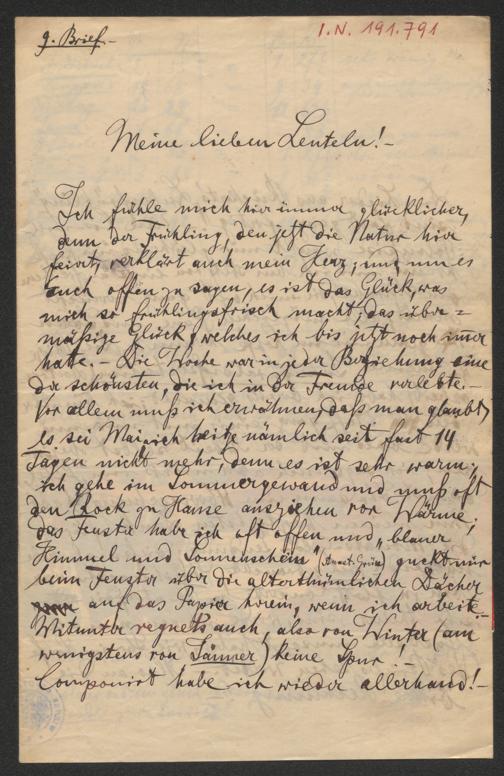 9. Brief.-
I.N. 191.791
Meine lieben Leuteln!-
Ich fühle mich hier immer glücklicher,
denn der Frühling, den jetzt die Natur hier
feiert, verklärt auch mein Herz; und um es
auch offen zu sagen, es ist das Glück, was
mich so frühlingsfrisch macht; das über=
mäßige Glück, welches ich bis jetzt noch immer
hatte.- Die Woche war in jeder Beziehung eine
der schönsten, die ich in der Fremde verlebte.-
Vor allem muß ich erwähnen, daß man glaubt,
es sei Mai; ich heitze nämlich seit fast 14
Tagen nicht mehr, denn es ist sehr warm;
ich gehe im Sommergewand und muß oft
den Rock zu Hause ausziehen vor Wärme;
das Fenster habe ich oft offen und „blauer
Himmel und Sonnenschein" (Anast. Grün) guckt mir
beim Fenster über die alterthümlichen Dächer
auf das Papier herein, wenn ich arbeite.
Mitunter regnets auch, also von Winter (am
wenigstens von Jänner) keine Spur.-
Componirt habe ich wieder allerhand!-